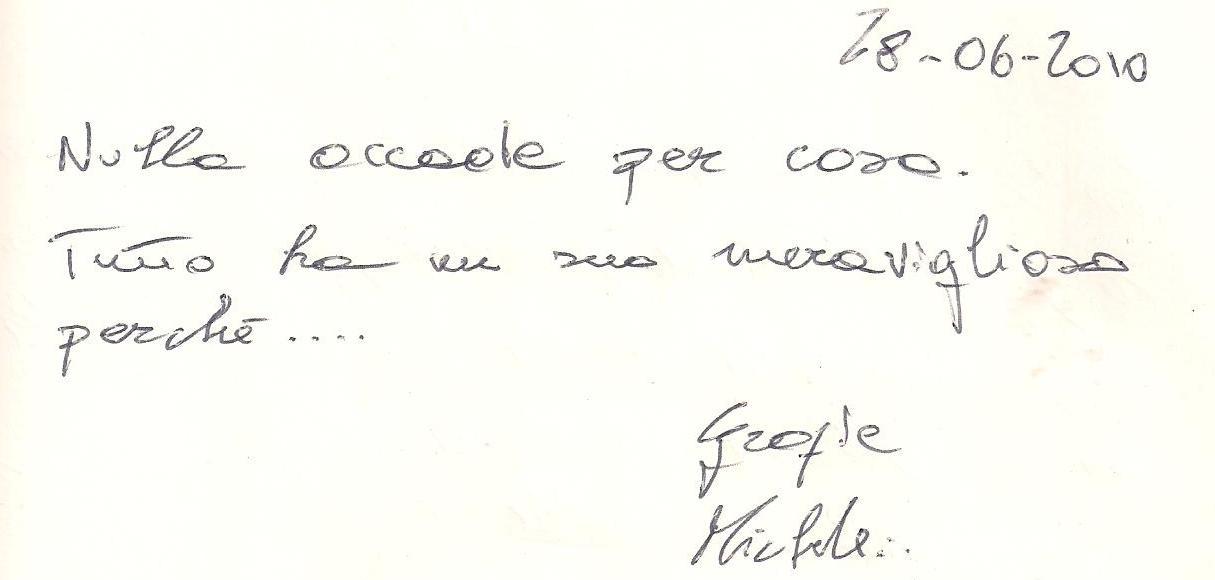 28-06-2010
Nulla accade per caso.
Tutto ha un suo meraviglioso
perché....
Grazie
Michele..